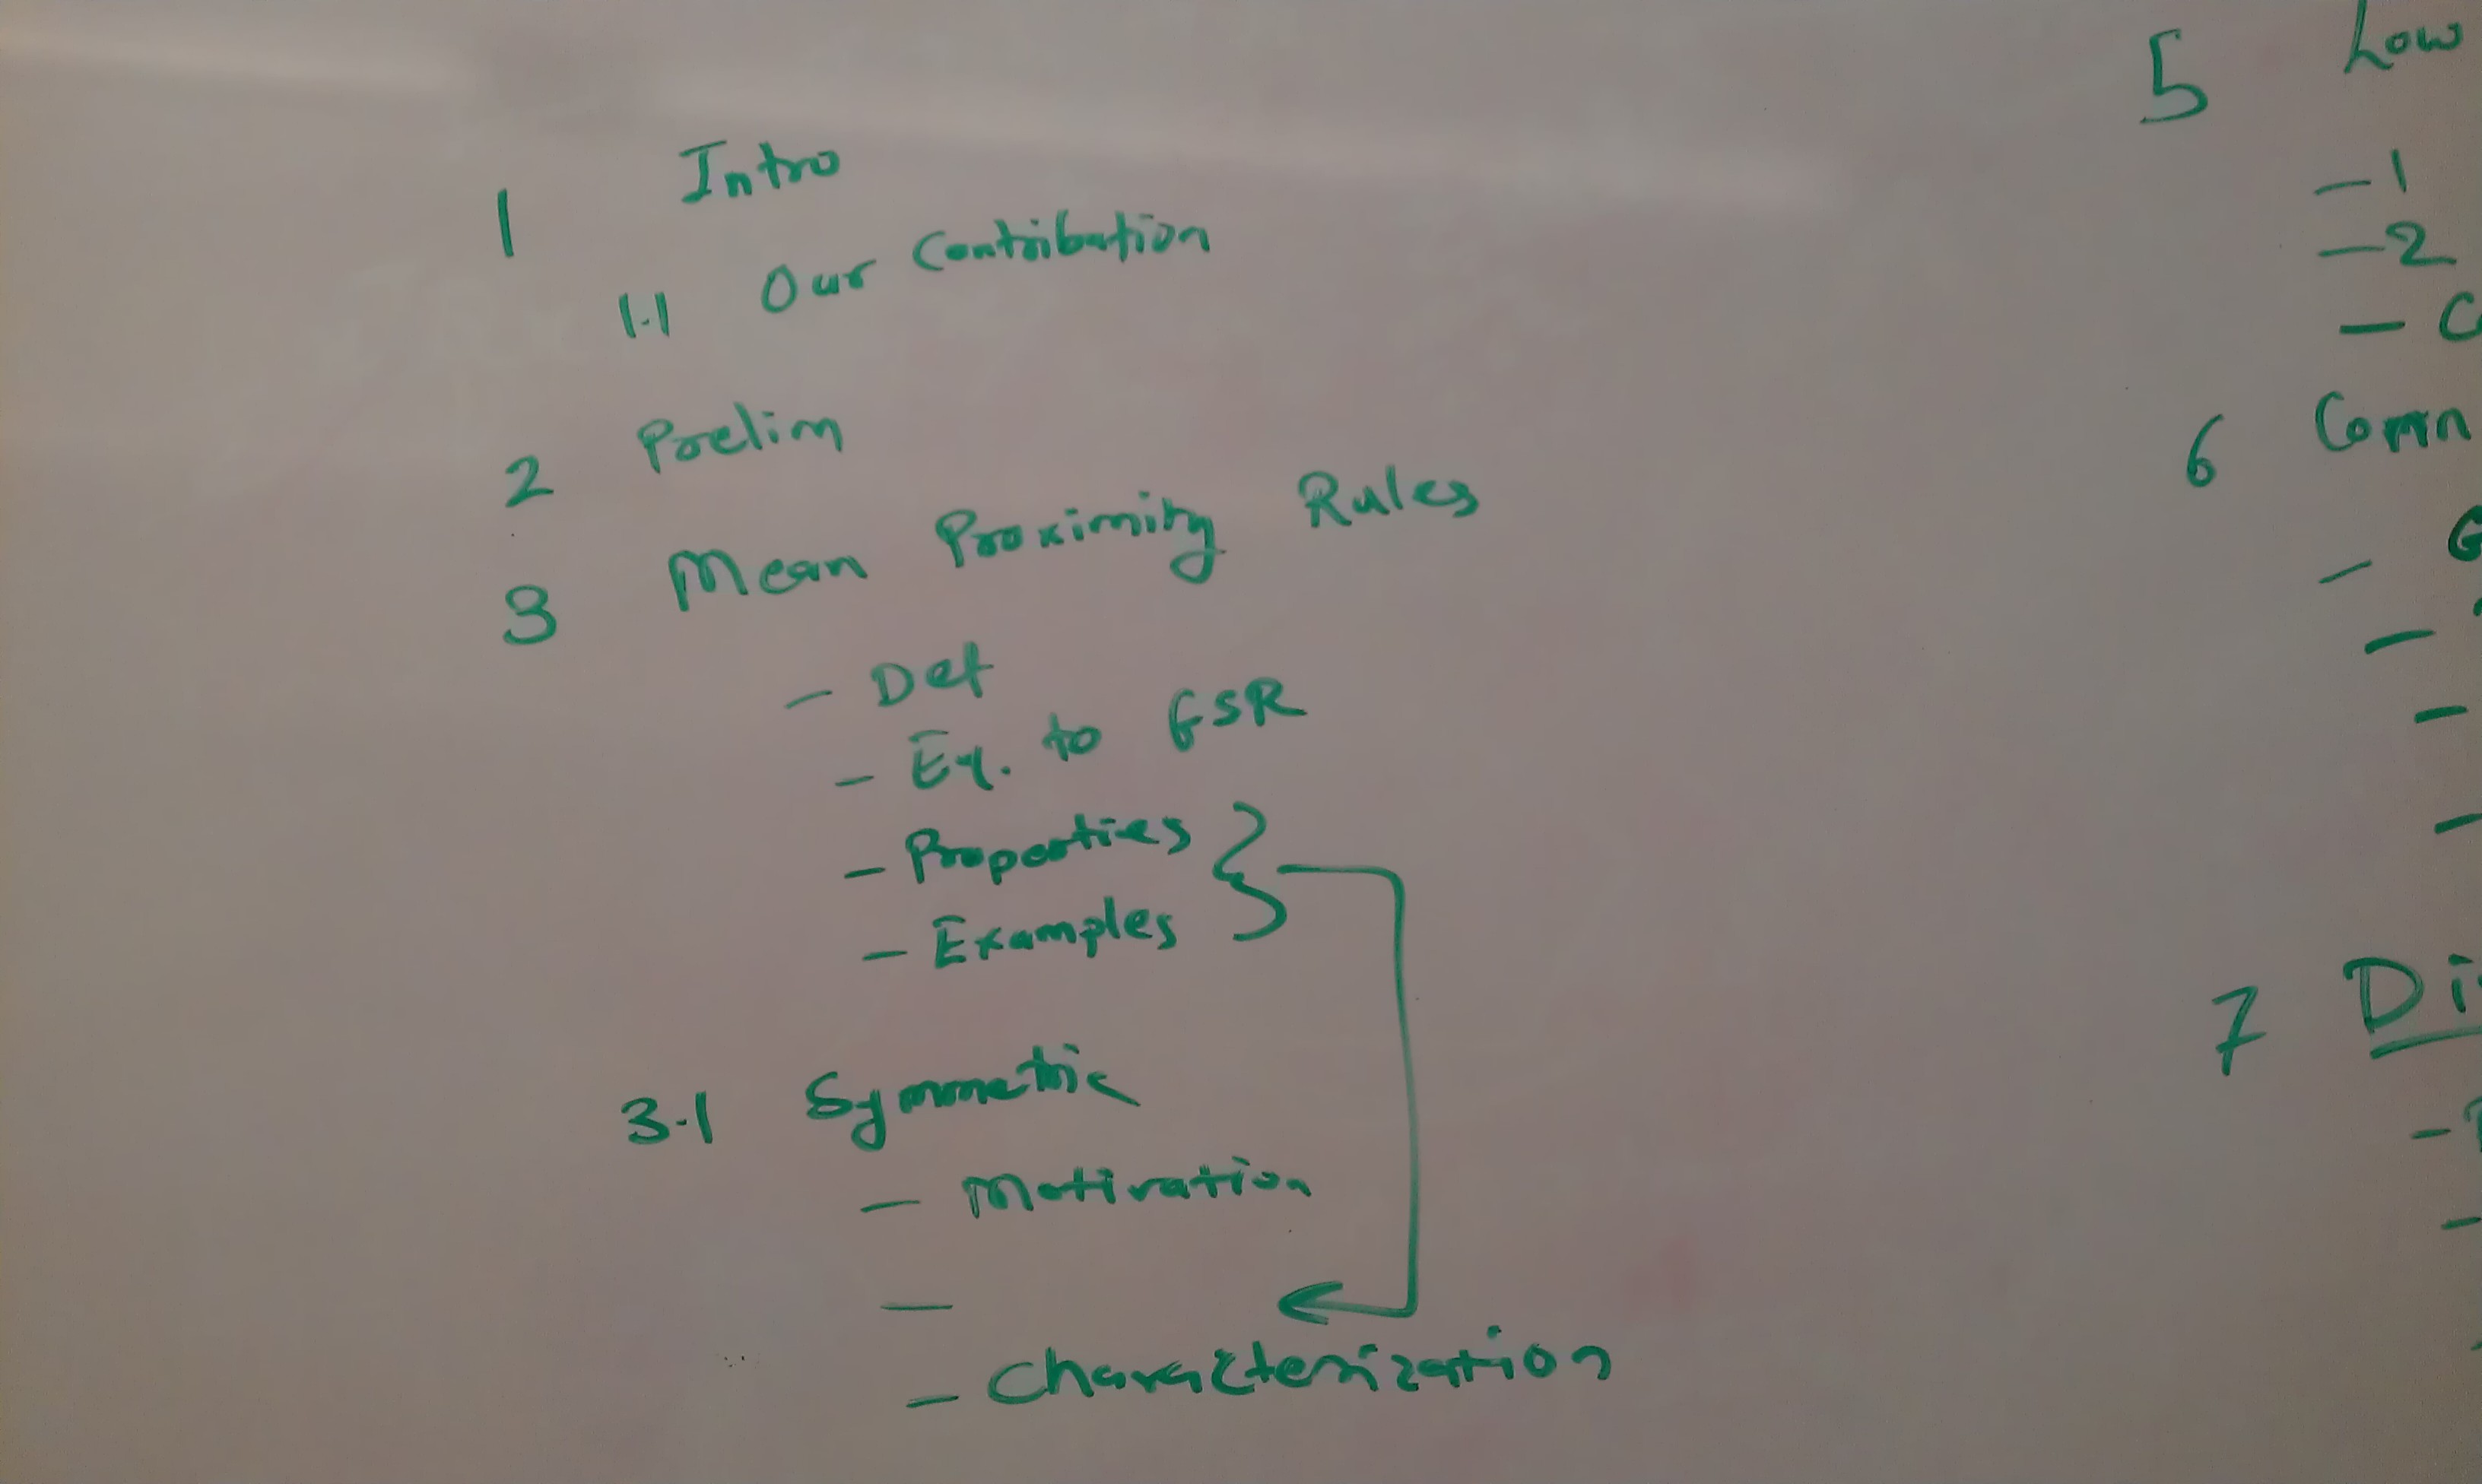 1 Intro
1.1 Our Contribution
2 Prelim
3 Mean Proximity Rules
- Def
- Eq. to GSR
- Properties
- Examples
3.1 Symmetric
- Motivation
-
- Characterization
5 Low
- 1
- 2
-
6 Comm
-
-
-
-
7 Di
-
-